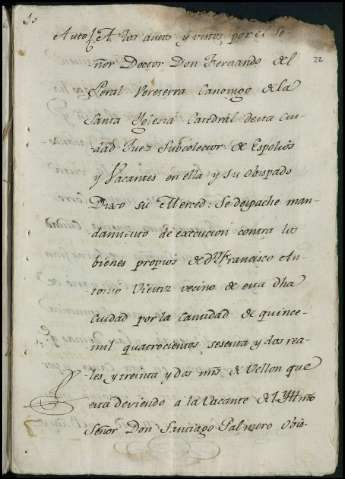 Auto A los autos y vistos por el Se-
ñor Doctor Don Fernando del
22
Canonigo de la
Santa Yglesia Catedral de esta Ciu-
dad Juez Subcolector de Espolios
y Vacantes en ella y su obispado
Dixo su Merced: Se despache man-
damiento de execucion contra los
bienes propios de Dn Francisco An-
tonio vecino de esta dha
Ciudad por la Cantidad de quince-
mil quatrocientos, sesenta y dos rea-
les y treinta y dos mrs de Vellon que
esta deviendo a la Vacante del Yttmo
Señor Don Santiago Palmero Obis-